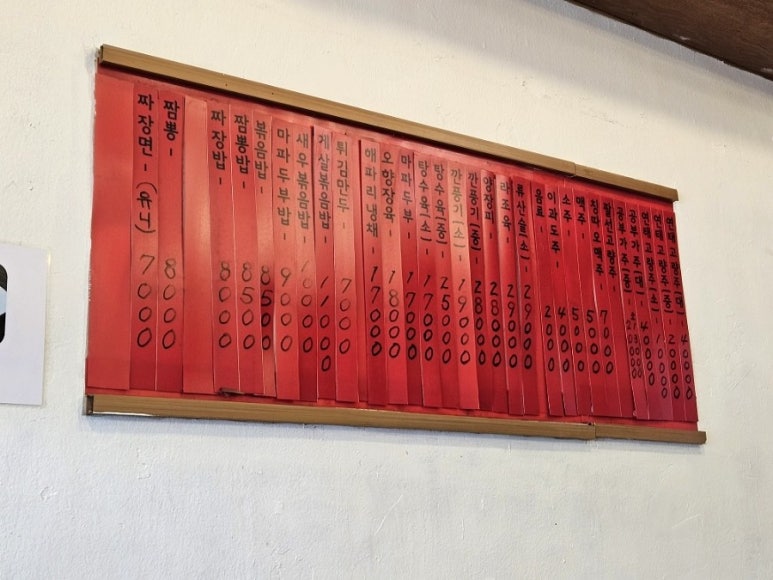 짜장면-(유니) 7000
짬뽕- 8000
짜장밥- 8000
짬뽕밥- 8500
볶음밥- 8500
마파두부밥- 9000
새우볶음밥- 10000
게살볶음밥- 11000
튀김만두- 7000
해파리냉채- 17000
오향장육- 18000
마파두부- 17000
탕수육(소)- 17000
탕수육(중)- 25000
깐풍기(소)- 19000
깐풍기(중)- 28000
양장피- 28000
라조육- 29000
류산슬(소)- 29000
음료-
이과도주- 2000
소주- 4000
맥주- 5000
칭따오맥주-
팔선고량주- 7000
공부가주(중)
공부가주(대)
연태고량주(소)
연태고량주(중)- 20000
연태고량주(대)- 40000